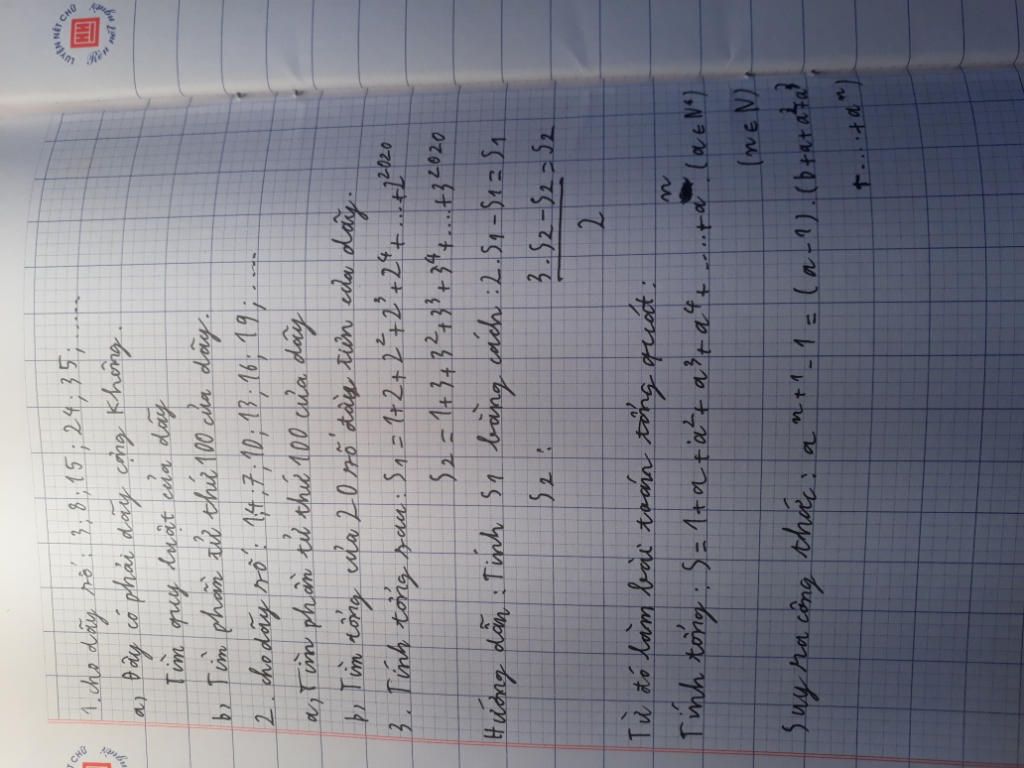 LUYỆN NÉT CHỮ
Rèn nết người
1. cho dãy số : 3 ; 8 ; 15 ; 24 ; 35 ; .......
a) Đây có phải dãy cộng không.
Tìm quy luật của dãy
b) Tìm phần tử thứ 100 của dãy.
2. cho dãy số : 1,4,7 ; 10 ; 13 ; 16 ; 19 ; .....
a) Tìm phần tử thứ 100 của dãy
b) Tìm tổng của 20 số đầu tiên của dãy.
3. Tính tổng sau : S1 = 1+2+2²+2³+2⁴+...+2²⁰²⁰
S2 = 1+3+3²+3³+3⁴+...+3²⁰²⁰
Hướng dẫn : Tính S1 bằng cách : 2.S1 - S1 = S1
S2 : 3.S2 - S2 = S2
2
Từ đó làm bài toán tổng quát :
Tính tổng : S = 1+a+a²+a³+a⁴+....+aⁿ (a ∈ N*)
(n ∈ N)
Suy ra công thức : aⁿ⁺¹ - 1 = (a-1).(b+a+a²+a³
+.....+aⁿ)
LUYỆN NÉT CHỮ